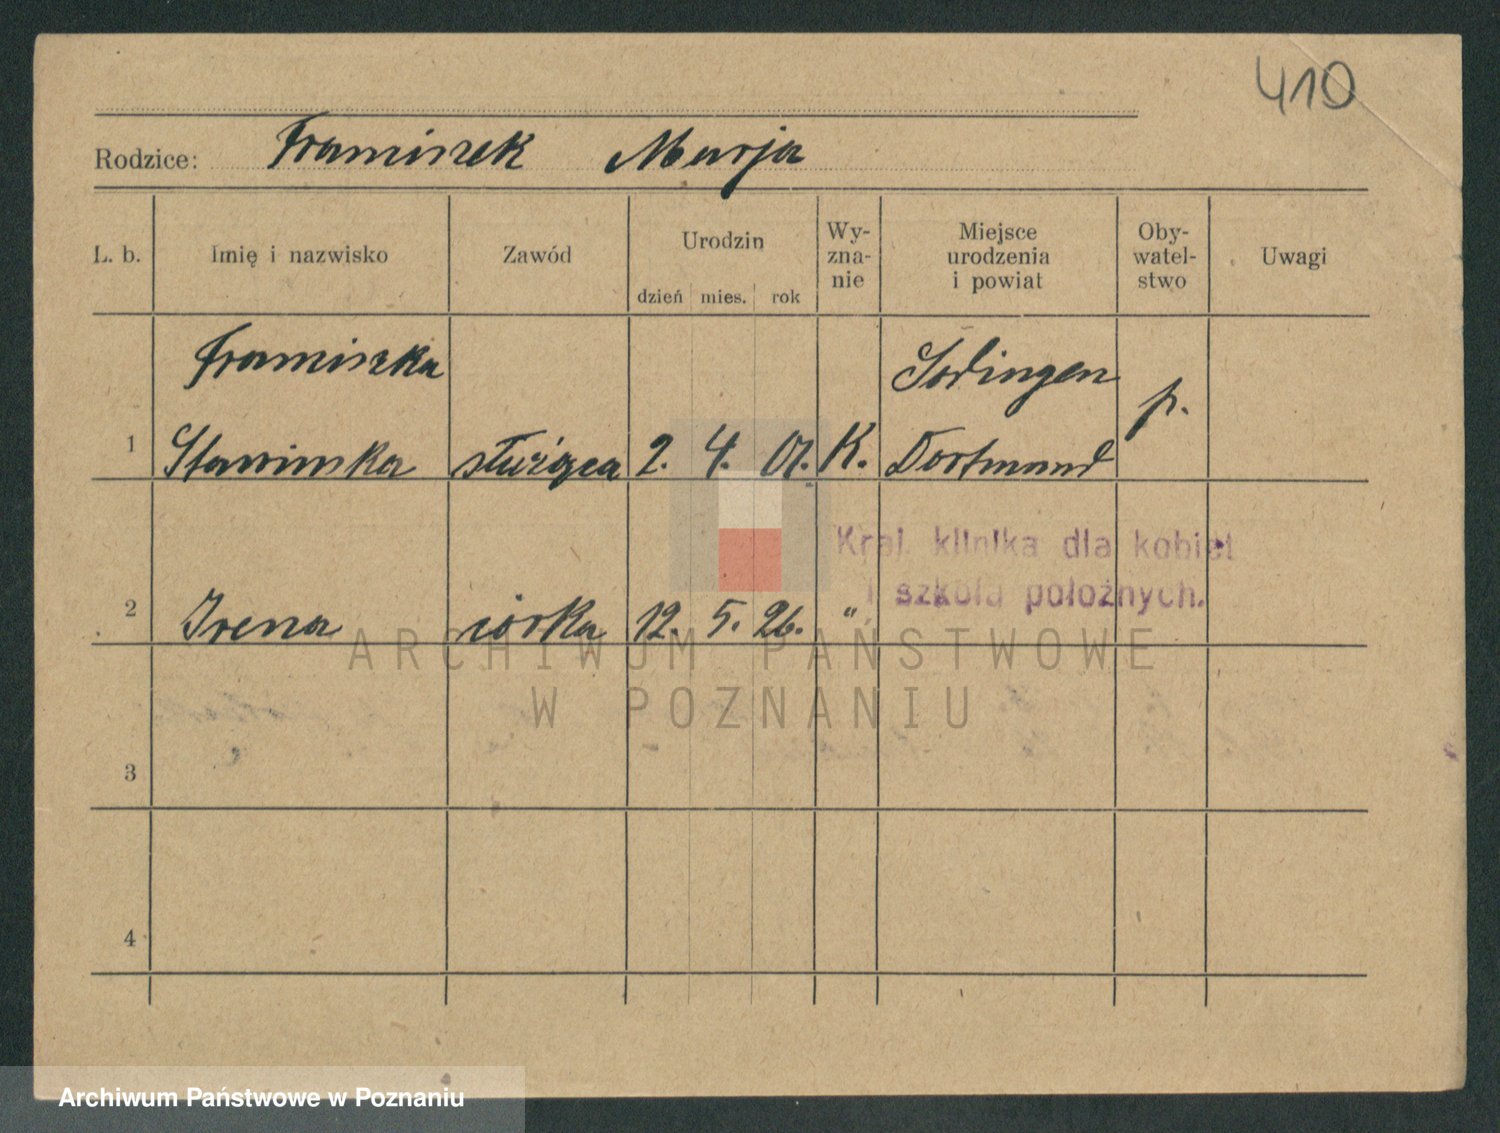 410
Rodzice: Franciszek Marja
L. b. Imię i nazwisko Zawód Urodzin Wy-zna-nie Miejsce urodzenia i powiat Oby-watel-stwo Uwagi
dzień mies. rok
Franciszka Sodingen
1 Sławińska służąca 2. 4. 01. K. Dortmund p.
Kraj. klinika dla kobiet
i szkoła położnych.
2 Irena córka 12. 5. 26. "
ARCHIWUM PAŃSTWOWE
W POZNANIU
3
4
Archiwum Państwowe w Poznaniu